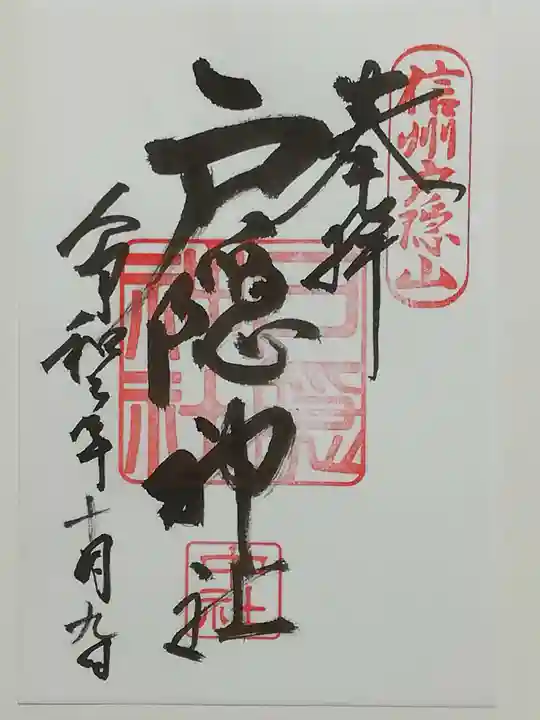 信州戸隠山
奉拝
戸隠神社
戸隠神社
中社
令和三年十月九日